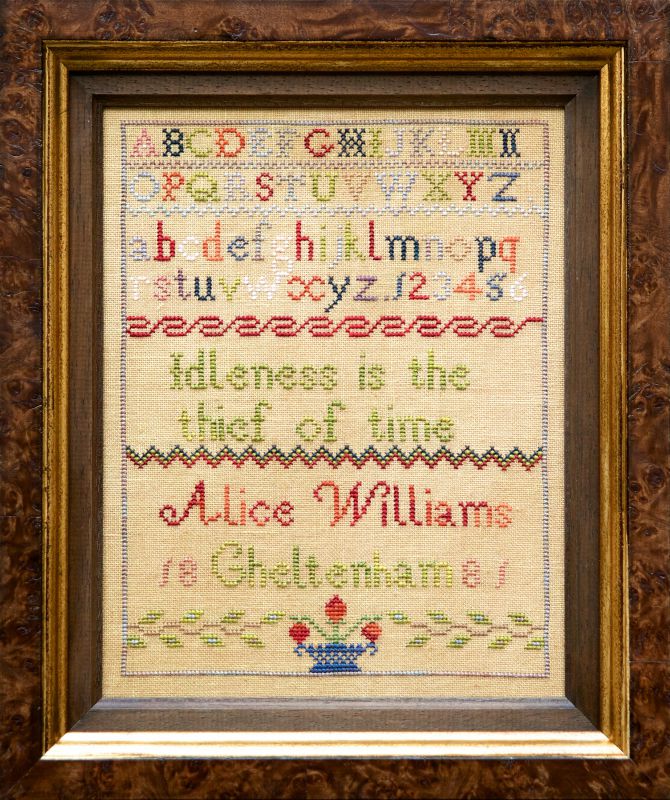 ABCDEFGHIJKLMN
OPQRSTUVWXYZ
abcdefghijklmnopq
rstuvwxyz.123456
Idleness is the
thief of time
Alice Williams
18 Cheltenham 81